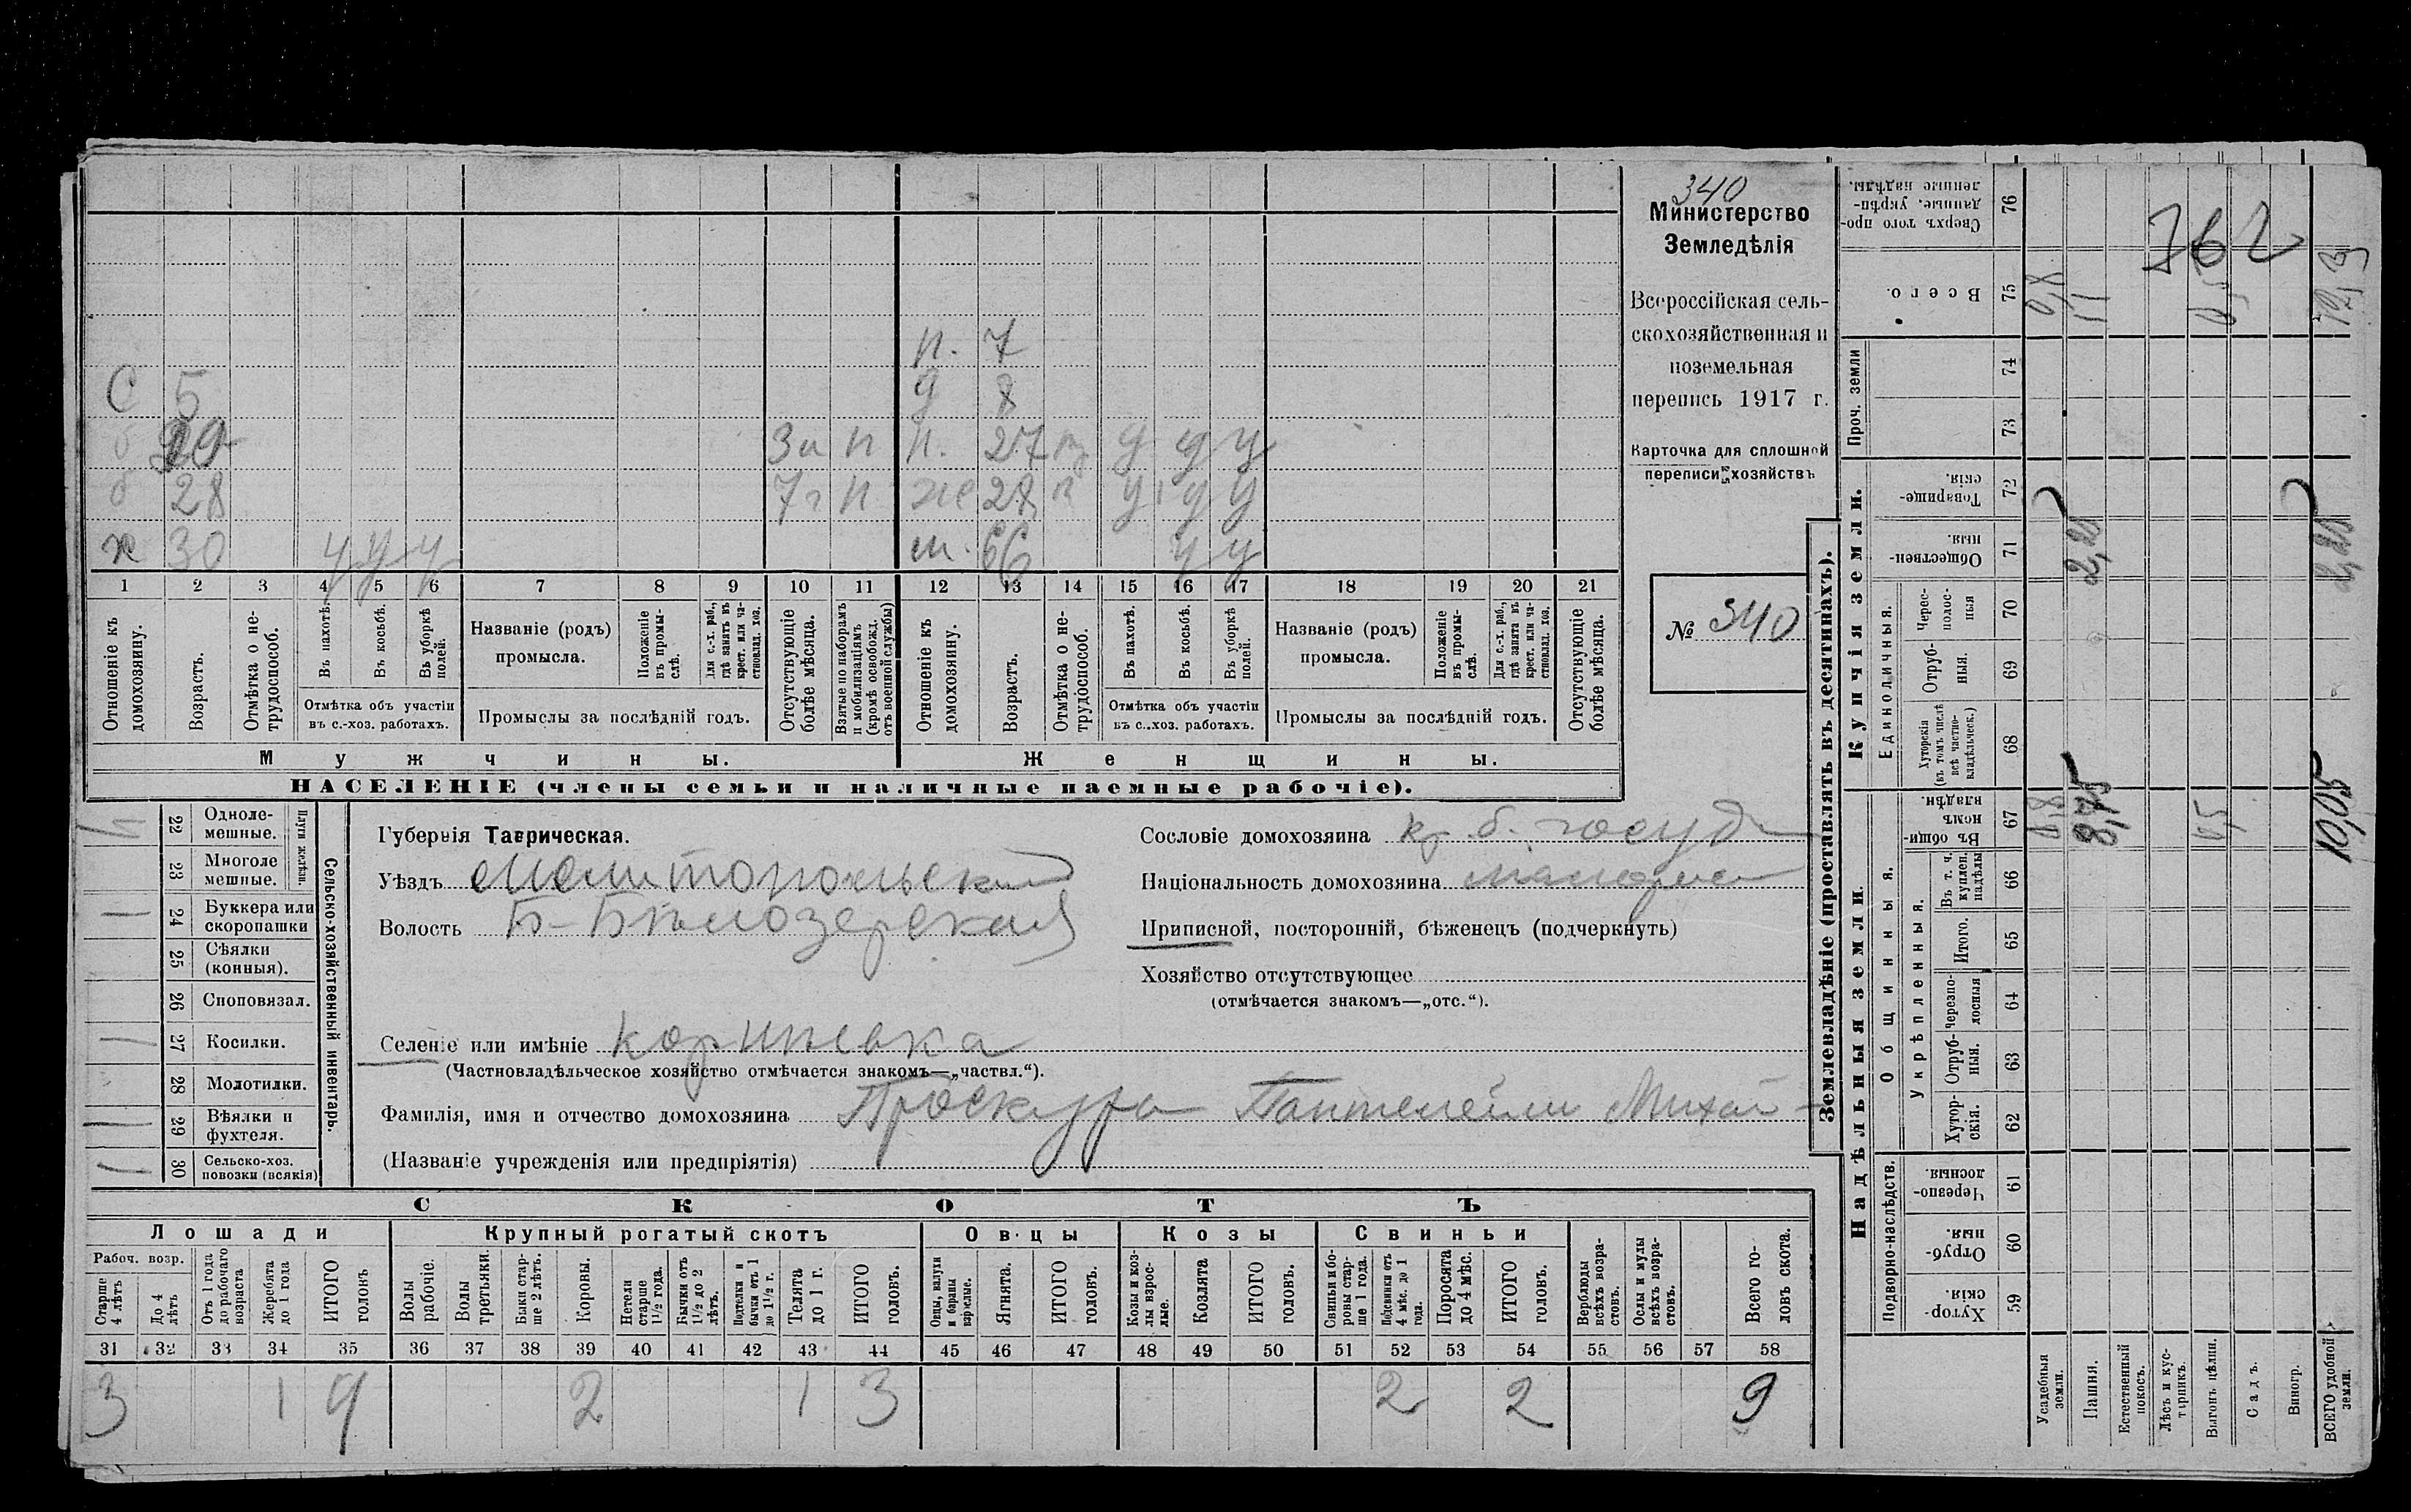 340
Министерство
Земледѣлія
Всероссійская сель-
скохозяйственная и
поземельная
перепись 1917 г.
Карточка для сплошной
переписи хозяйствъ
№ 340
п. 7
С 5 д 8
б 29 3 п п. 27 у у у
б 28 7 п ж 28 у у у
х 30 у у у м. 66 у у
1 2 3 4 5 6 7 8 9 10 11 12 13 14 15 16 17 18 19 20 21
Отношеніе къ домохозяину.
Возрастъ.
Отмѣтка о не-трудоспособ.
Въ пахотѣ.
Въ косьбѣ.
Въ уборкѣ полей.
Отмѣтка объ участіи въ с.-хоз. работахъ.
Названіе (родъ) промысла.
Положеніе въ промы-слѣ.
Для с.-х. раб., гдѣ занятъ въ крест. или ча-стновлад. хоз.
Промыслы за послѣдній годъ.
Отсутствующіе болѣе мѣсяца.
Взятые по наборамъ и мобилизаціямъ (кромѣ освобожд. отъ военной службы)
Отношеніе къ домохозяину.
Возрастъ.
Отмѣтка о не-трудоспособ.
Въ пахотѣ.
Въ косьбѣ.
Въ уборкѣ полей.
Отмѣтка объ участіи въ с.-хоз. работахъ.
Названіе (родъ) промысла.
Положеніе въ промы-слѣ.
Для с.-х. раб., гдѣ занята въ крест. или ча-стновлад. хоз.
Промыслы за послѣдній годъ.
Отсутствующіе болѣе мѣсяца.
Мужчины. Женщины.
НАСЕЛЕНІЕ (члены семьи и наличные наемные рабочіе).
Сельско-хозяйственный инвентарь.
Плуги желѣзн.
22 Одноле-мешные.
23 Многоле мешные.
1 24 Буккера или скоропашки
25 Сѣялки (конныя).
26 Сноповязал.
1 27 Косилки.
28 Молотилки.
1 29 Вѣялки и фухтеля.
1 30 Сельско-хоз. повозки (всякія)
Губернія Таврическая.
Уѣздъ Мелитопольский
Волость Б-Бѣлозерская
Селеніе или имѣніе Корнѣевка
(Частновладѣльческое хозяйство отмѣчается знакомъ—„частвл.“).
Фамилія, имя и отчество домохозяина Проскура Пантелейм Михай-
(Названіе учрежденія или предпріятія)
Сословіе домохозяина кр. б. госуд
Національность домохозяина малорос
Приписной, посторонній, бѣженецъ (подчеркнуть)
Хозяйство отсутствующее
(отмѣчается знакомъ—„отс.“).
СКОТЪ
Лошади Крупный рогатый скотъ Овцы Козы Свиньи
Рабоч. возр.
Старше 4 лѣтъ
До 4 лѣтъ
Отъ 1 года до рабочаго возраста
Жеребята до 1 года
ИТОГО головъ
Волы рабочіе.
Волы третьяки.
Быки стар-ше 2 лѣтъ.
Коровы.
Нетели старше 1½ года.
Бычки отъ 1½ до 2 лѣтъ.
Подтелки и бычки отъ 1 до 1½ г.
Телята до 1 г.
ИТОГО головъ.
Овцы, валухи и бараны взрослые.
Ягнята.
ИТОГО головъ.
Козы и коз-лы взрос-лые.
Козлята
ИТОГО головъ.
Свиньи и бо-ровы стар-ше 1 года.
Подсвинки отъ 4 мѣс. до 1 года.
Поросята до 4 мѣс.
ИТОГО головъ.
Верблюды всѣхъ возра-стовъ.
Ослы и мулы всѣхъ возра-стовъ.
Всего го-ловъ скота.
31 32 33 34 35 36 37 38 39 40 41 42 43 44 45 46 47 48 49 50 51 52 53 54 55 56 57 58
3 1 4 2 1 3 2 2 9
Землевладѣніе (проставлять въ десятинахъ).
Надѣльныя земли. Купчія земли. Проч. земли
Подворно-наслѣдств. Общинныя. Единоличныя.
Укрѣпленныя.
59 Хутор-скія.
60 Отруб-ныя.
61 Черезпо-лосныя.
62 Хутор-скія.
63 Отруб-ныя.
64 Черезпо-лосныя
65 Итого.
66 Въ т. ч. куплен. надѣлы
67 Въ общин-номъ владѣн.
68 Хуторскія (въ томъ числѣ всѣ частно-владѣльческ.)
69 Отруб-ныя.
70 Черес-полос-ныя
71 Обществен-ныя.
72 Товарище-скія.
73
74
75 Всего.
76 Сверхъ того про-данные, укрѣп-ленные надѣлы.
Усадебныя земли. 0,8 0,8
Пашня. 8,75 2,20 11
Естественный покосъ.
Лѣсъ и кус-тарникъ.
Выгонъ цѣлин. 0,5 0,5
Садъ.
Виногр.
ВСЕГО удобной земли. 10,05 2,20 12,3
762